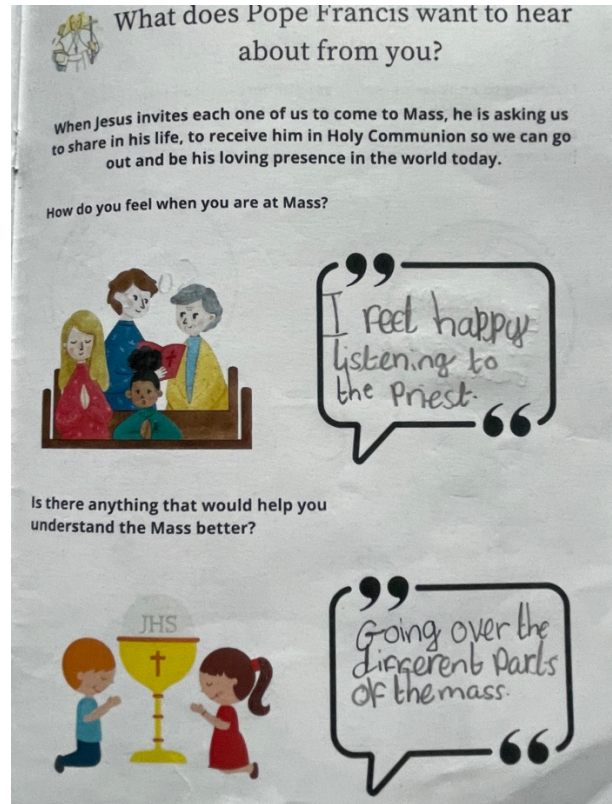 What does Pope Francis want to hear
about from you?
When Jesus invites each one of us to come to Mass, he is asking us
to share in his life, to receive him in Holy Communion so we can go
out and be his loving presence in the world today.
How do you feel when you are at Mass?
I feel happy
listening to
the Priest.
Is there anything that would help you
understand the Mass better?
JHS
Going over the
different Parts
of the mass.